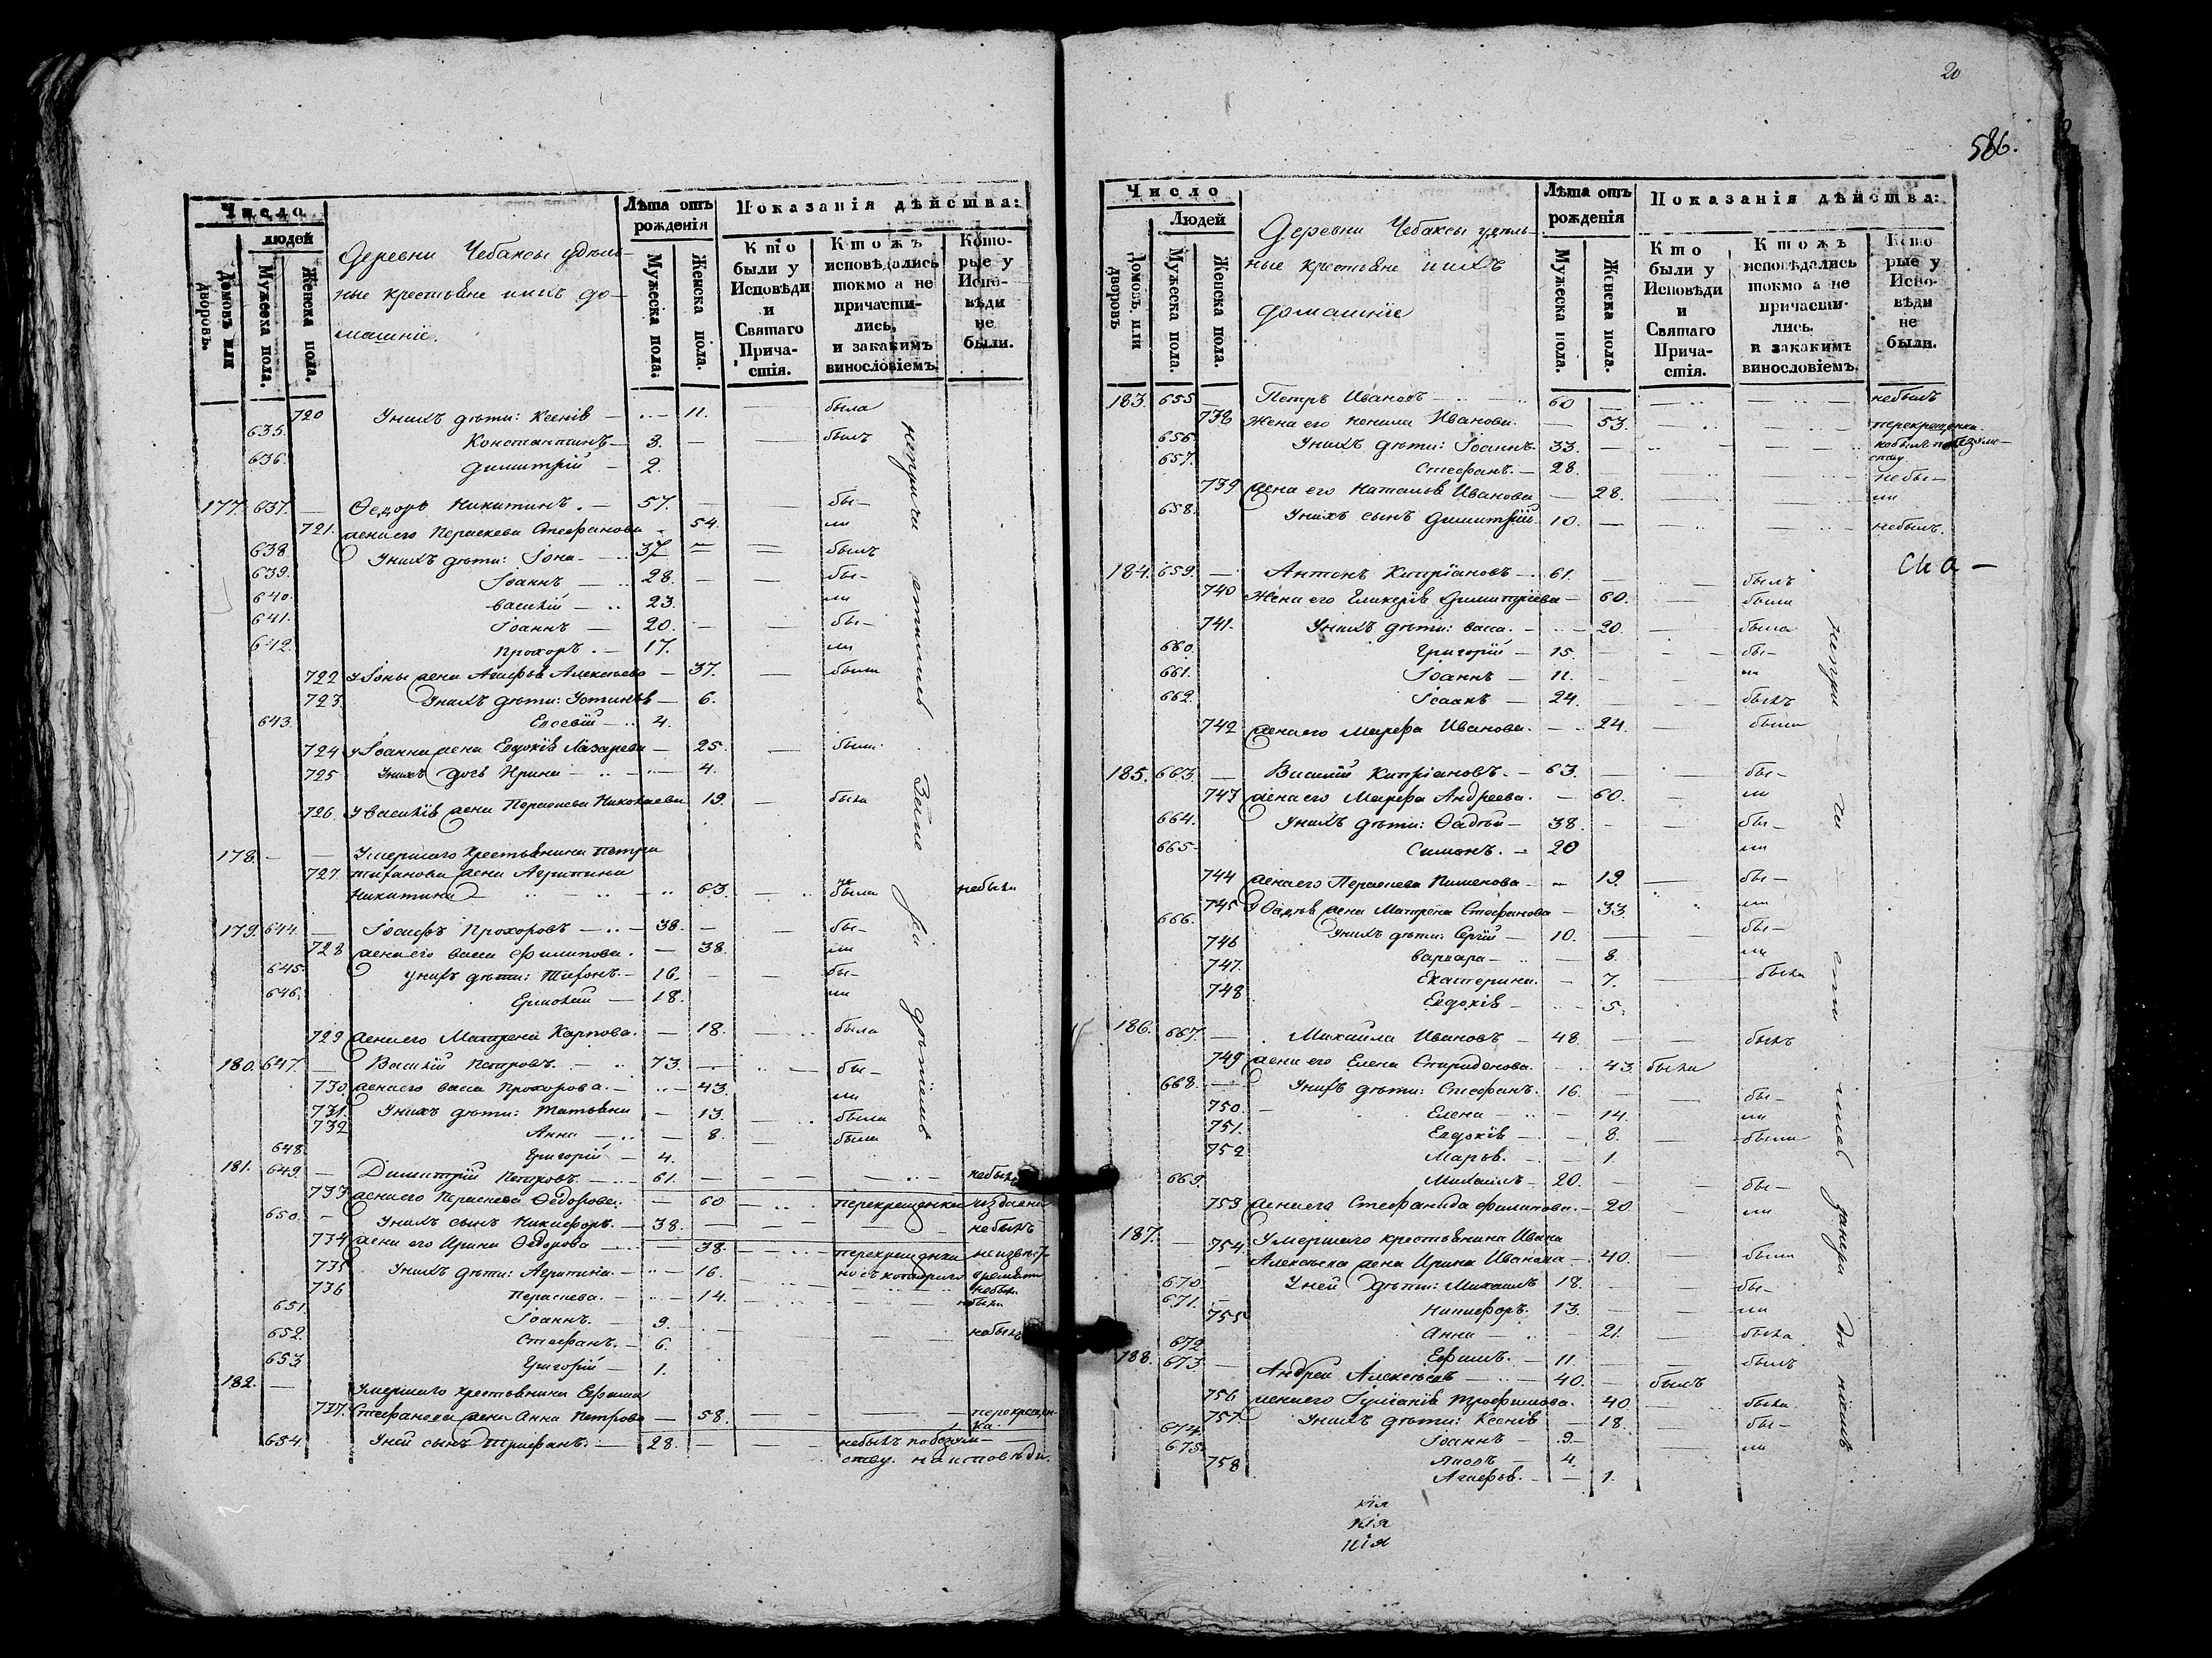 Число
людей
Домовъ или дворовъ.
Мужеска пола.
Женска пола.
Деревни Чебаксы удѣль-
ные крестьяне и ихъ до-
машніе.
Лѣта отъ рожденія
Мужеска пола.
Женска пола.
Показанія дѣйства:
Кто были у Исповѣди и Святаго Прича-стія.
Ктожъ исповѣдались токмо а не причасти-лись, и закакимъ винословіемъ.
Кото-рые у Испо-вѣди не были.
720 Унихъ дѣти: Ксенія 11. была
635. Константинъ 3. былъ
636. Димитрій 2.
177. 637. Ѳедоръ Никитинъ. 57. бы-
721. жена его Параскева Стефанова 54. ли
638 Унихъ дѣти: Іона 37 былъ
639. Іоаннъ 28. бы-
640. Василій 23. ли
641. Іоаннъ 20. бы-
642. Прохоръ. 17. ли
722 у Іоны жена Агафья Алексѣева 37. была
723. Унихъ дѣти: Устинья 6.
643. Елосвій 4.
724 у Іоанна жена Евдокія Лазарева 25. была
725 Унихъ дочь Ирина 4.
726. у Василія жена Параскева Николаева 19. была
178. Умершаго крестьянина Петра
727. жена Агрипина
Никитина 63. небыла
179. 644. Іосифъ Прохоровъ 38. бы-
728 жена его Васса Филипова. 38. ли
645. Унихъ дѣти: Тихонъ. 16. бы-
646. Ермолай 18. ли
729 жена его Матрена Карпова. 18. была
180. 647. Василій Петровъ. 73. бы-
730 жена его Васса Прохорова. 43. ли
731. Унихъ дѣти: Татьяна 13. была
732 Анна 8. была
648. Григорій 4.
181. 649. Димитрій Петровъ. 61. небылъ
733 жена его Параскева Ѳедорова. 60 перекрещенка издавна
650. Унихъ сынъ Никифоръ. 38. небылъ
734 жена его Ирина Ѳедорова 38. перекрещенка неизвѣст-
735 Унихъ дѣти: Агрипина. 16. но съ котораго времяни
736 Параскева. 14. небыла
651. Іоаннъ. 9.
652. Стефанъ. 6. небылъ
653 Григорій 1.
182. Умершаго крестьянина Ефима
737. Стефанова жена Анна Петрова 58. перекрещен-
ка.
654. Уней сынъ Трифанъ. 28. небылъ по безум-
ству. на исповѣди.
непричастились За дѣтіемъ
20
586.
Число
Людей
Домовъ, или дворовъ
Мужеска пола.
Женска пола.
Деревни Чебаксы удѣль-
ные крестьяне и ихъ
домашніе
Лѣта отъ рожденія
Мужеска пола.
Женска пола.
Показанія дѣйства:
Кто были у Исповѣди и Святаго Прича-стія.
Ктожъ исповѣдались токмо а не причасти-лись, и закакимъ винословіемъ.
Кото-рые у Испо-вѣди не были.
183. 655 Петръ Ивановъ 60 небылъ
738 Жена его Иванова. 53. перекрещенка
656. Унихъ дѣти: Іоаннъ. 33. небылъ по безум-
ству
657. Стефанъ. 28. небы-
739 жена его Наталья Иванова 28. ли
658. Унихъ сынъ Димитрій 10. небылъ.
184. 659. Антонъ Кипріановъ 61. былъ
740 Жена его Гликерія Димитріева 60. была
741. Унихъ дѣти: Васса. 20. была
660. Григорій 15. бы-
661. Іоаннъ 11. ли
662. Ісаакъ 24. былъ
742 жена его Марфа Иванова. 24. была
185. 663. Василій Кипріановъ. 63. бы-
743 жена его Марфа Андреева. 60. ли
664. Унихъ дѣти: Ѳадѣй 38. бы-
665. Симонъ. 20 ли
744 жена его Параскева Пименова 19. бы-
745 у Ѳадѣя жена Матрена Стефанова 33. ли
666. Унихъ дѣти: Сергій 10. бы-
746 Варвара 8. ли
747. Екатерина. 7. была
748 Евдокія 5.
186. 667. Михайла Ивановъ 48. былъ
749 жена его Елена Спиридонова. 43. была
668. Унихъ дѣти: Стефанъ. 16. бы-
750. Елена 14. ли
751. Евдокія 8. была
752 Марья. 1.
669. Михаилъ 20. бы-
753 жена его Стефанида Филипова. 20 ли
187. 754. Умершаго крестьянина Ивана
Алексѣева жена Ирина Иванова 40. была
670. Уней дѣти: Михаилъ 18. бы-
671. Никифоръ. 13. ли
755 Анна 21. была
672 Ефимъ. 11. былъ
188. 673 Андрей Алексѣевъ 40. былъ
756 жена его Іуліанія Трофимова. 40. была
757 Унихъ дѣти: Ксенія 18. бы-
674. Іоаннъ 9. ли
675. 4.
758 Агафья. 1.
непри-ча-сти-лись
кія
кія
нія